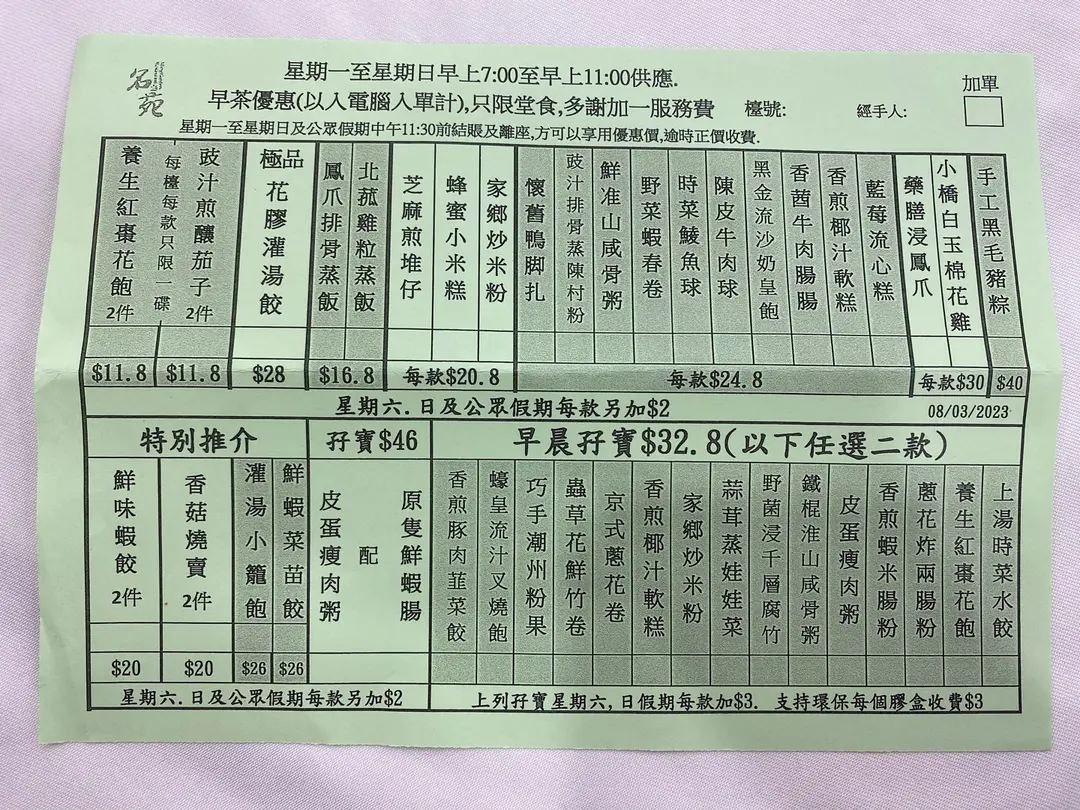 名苑
星期一至星期日早上7:00至早上11:00供應.
加單
早茶優惠(以入電腦入單計),只限堂食,多謝加一服務費
檯號:
經手人:
星期一至星期日及公眾假期中午11:30前結賬及離座,方可以享用優惠價,逾時正價收費.
養生紅棗花飽 2件
每檯每款只限一碟
豉汁煎釀茄子 2件
極品花膠灌湯餃
鳳爪排骨蒸飯
北菰雞粒蒸飯
芝麻煎堆仔
蜂蜜小米糕
家鄉炒米粉
懷舊鴨脚扎
豉汁排骨蒸陳村粉
鮮准山咸骨粥
野菜蝦春卷
時菜鯪魚球
陳皮牛肉球
黑金流沙奶皇飽
香茜牛肉腸
香煎椰汁軟糕
藍莓流心糕
藥膳浸鳳爪
小橋白玉棉花雞
手工黑毛豬粽
$11.8
$11.8
$28
$16.8
每款$20.8
每款$24.8
每款$30
$40
星期六.日及公眾假期每款另加$2
08/03/2023
特別推介
孖寶$46
早晨孖寶$32.8(以下任選二款)
鮮味蝦餃 2件
香菇燒賣 2件
灌湯小籠飽
鮮蝦菜苗餃
皮蛋瘦肉粥
配
原隻鮮蝦腸
香煎豚肉韮菜餃
蠔皇流汁叉燒飽
巧手潮州粉果
蟲草花鮮竹卷
京式蔥花卷
香煎椰汁軟糕
家鄉炒米粉
蒜茸蒸娃娃菜
野菌浸千層腐竹
鐵棍淮山咸骨粥
皮蛋瘦肉粥
香煎蝦米腸粉
蔥花炸兩腸粉
養生紅棗花飽
上湯時菜水餃
$20
$20
$26
$26
星期六.日及公眾假期每款另加$2
上列孖寶星期六,日假期每款加$3. 支持環保每個膠盒收費$3